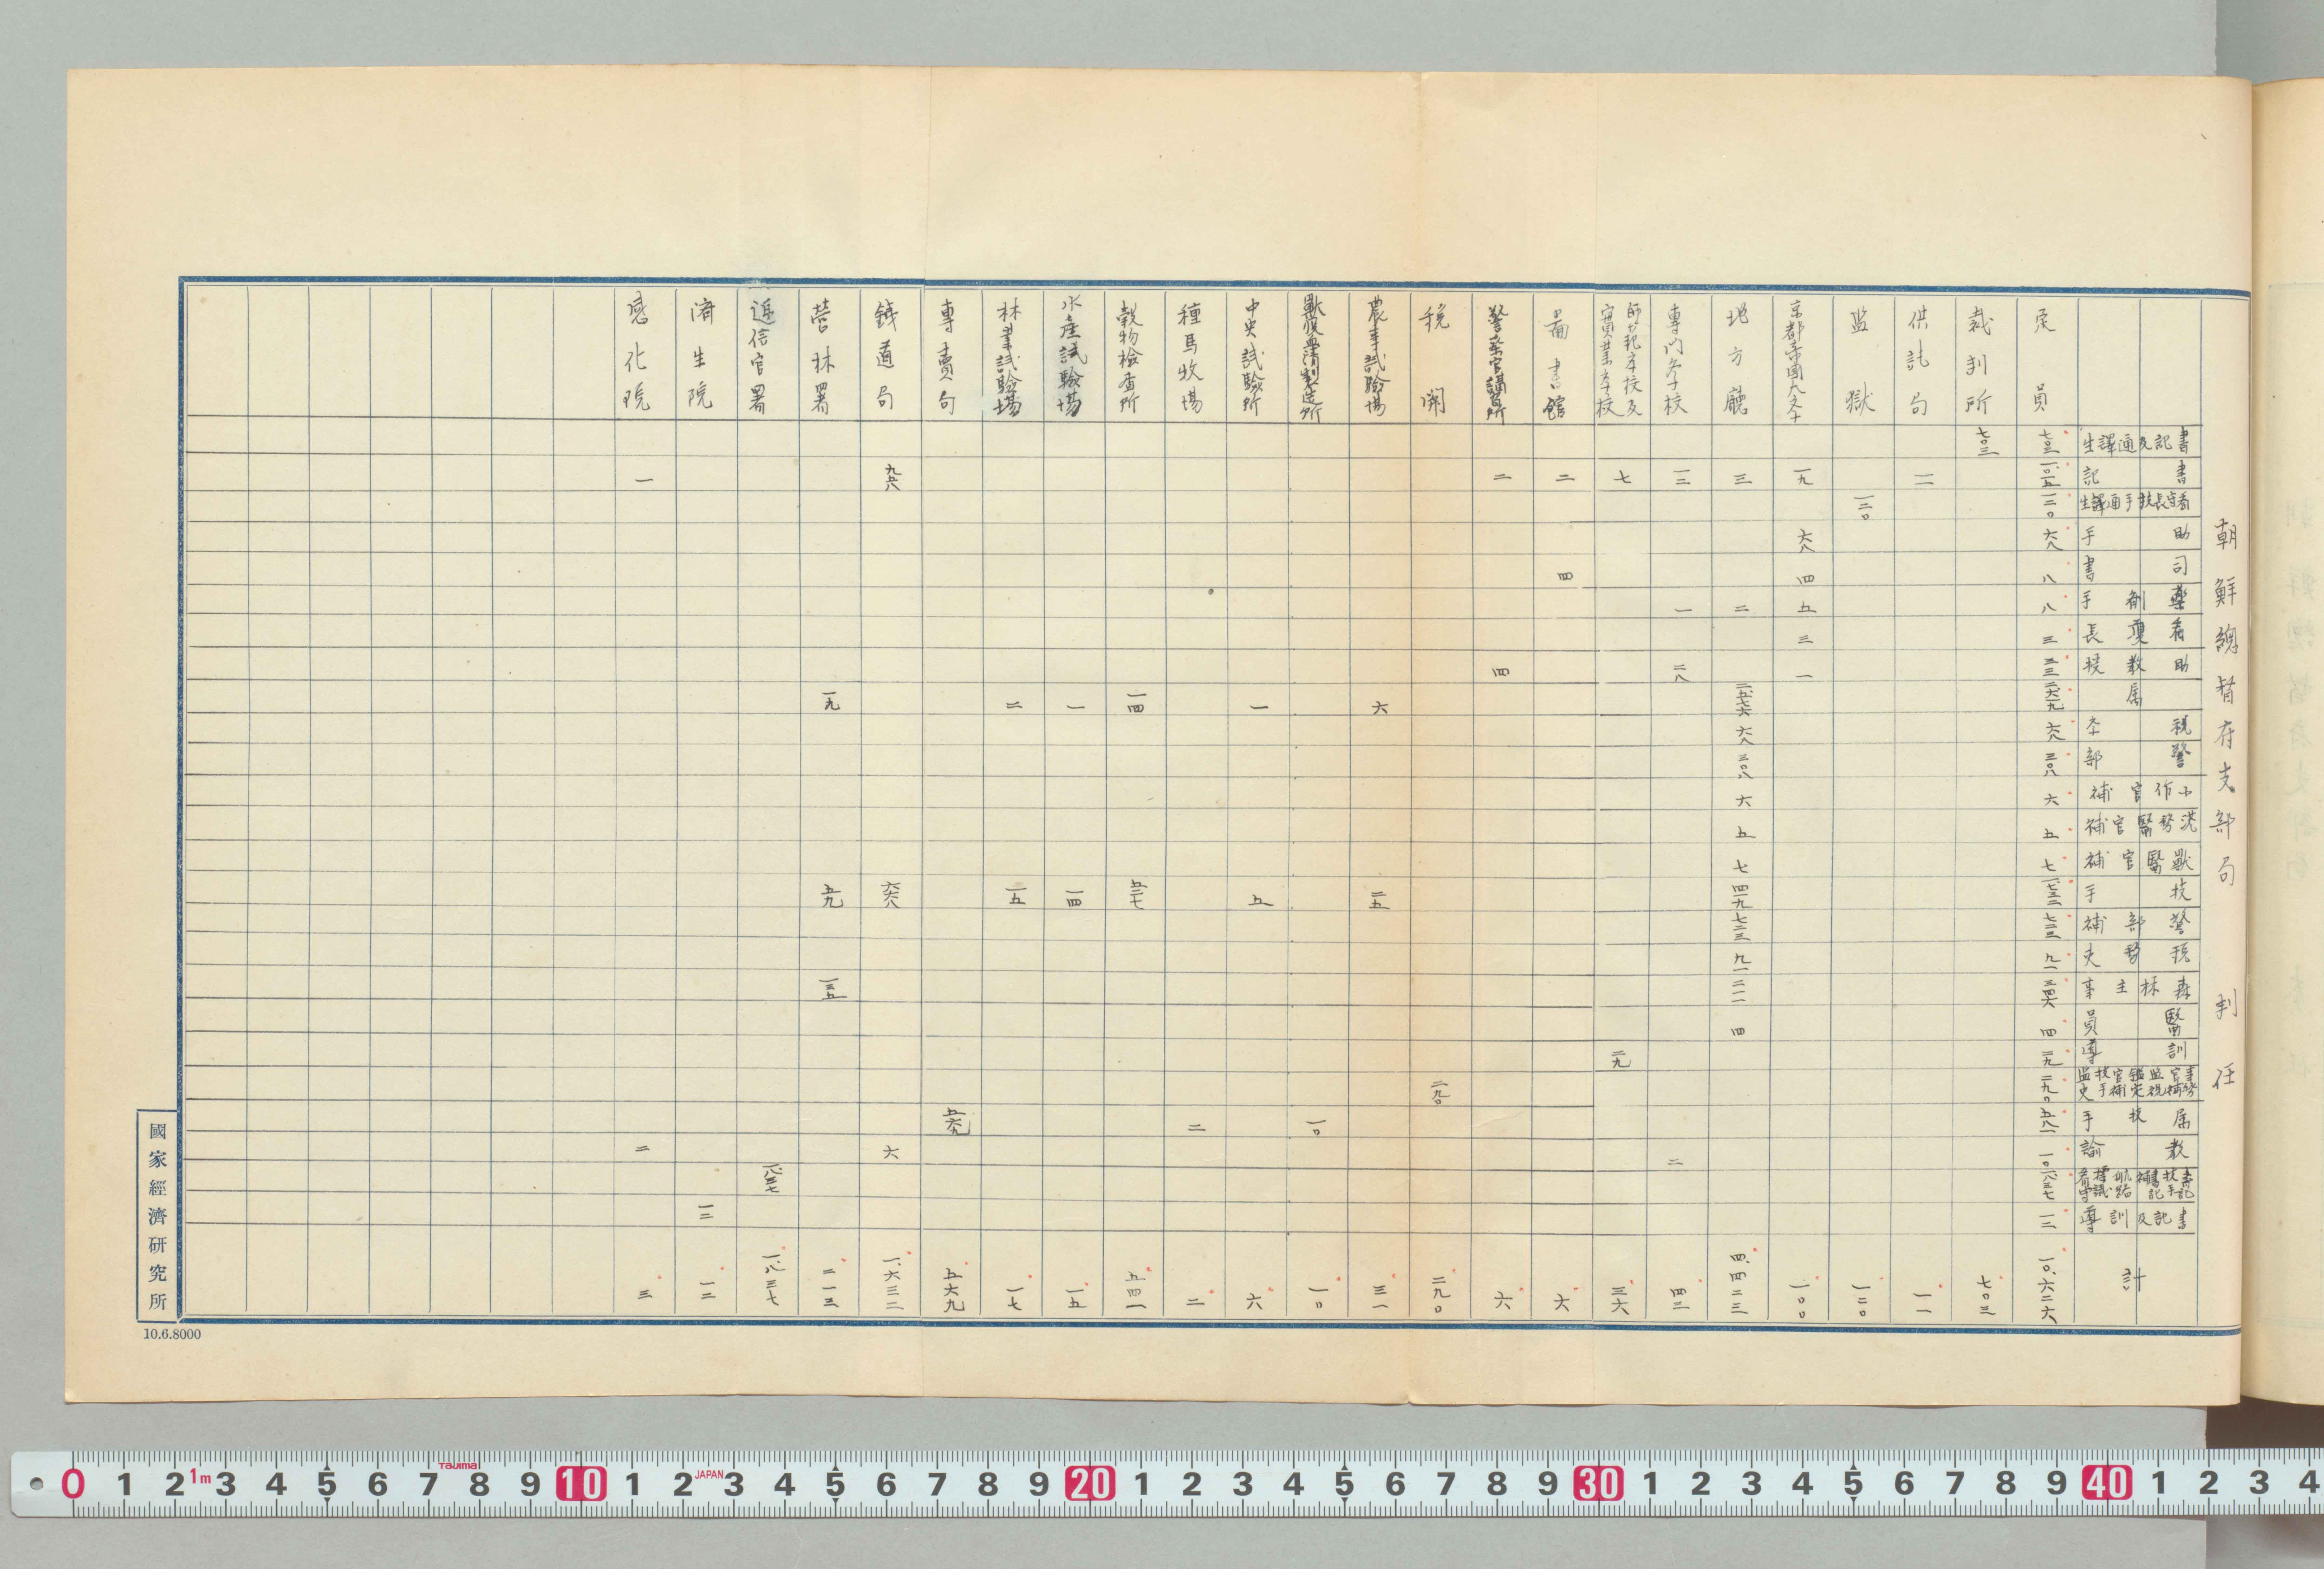 朝鮮總督府支部局 判任
書記及通譯生
書記
看守長技手通譯生
助手
司書
藥劑手
看護長
助教授
属
税
警部
小作官補
港務醫官補
獸醫官補
技手
警部補
税務吏
森林主事
醫員
訓導
属 技手
教諭
書記及訓導
計
定員
七〇三
一二〇
六八
八
八
三
三三
六八
三〇八
六
五
七
七三三
九一
三四六
四
二九
二九〇
五八一
一〇
一、八三七
一二
一〇、六二六
裁判所
七〇三
七〇三
供託局
一一
一一
監獄
一二〇
一二〇
京都帝國大学
一九
六八
四
五
三
一
一〇〇
地方廳
三
二
二、五七六
六八
三〇八
六
五
七
四一九
七三三
九一
二一一
四
四、四二三
専門学校
一二
一
二八
二
四三
師範学校及實業学校
七
二九
三六
圖書館
二
四
六
警察官講習所
二
四
六
税関
二九〇
二九〇
農事試験場
六
二五
三一
獸疫血清製造所
一〇
一〇
中央試驗所
一
五
六
種馬牧場
二
二
穀物檢査所
一四
五二七
五四一
水産試驗場
一
一四
一五
林業試驗場
二
一五
一七
専賣局
五六九
五六九
鉄道局
九五八
六六八
六
一、六三二
營林署
一九
五九
一三五
二一三
逓信官署
一、八三七
一、八三七
済生院
一二
一二
感化院
一
二
三
國家經濟研究所
10.6.8000
0 1 2 1m 3 4 5 6 7 Tajima 8 9 10 1 2 JAPAN 3 4 5 6 7 8 9 20 1 2 3 4 5 6 7 8 9 30 1 2 3 4 5 6 7 8 9 40 1 2 3 4